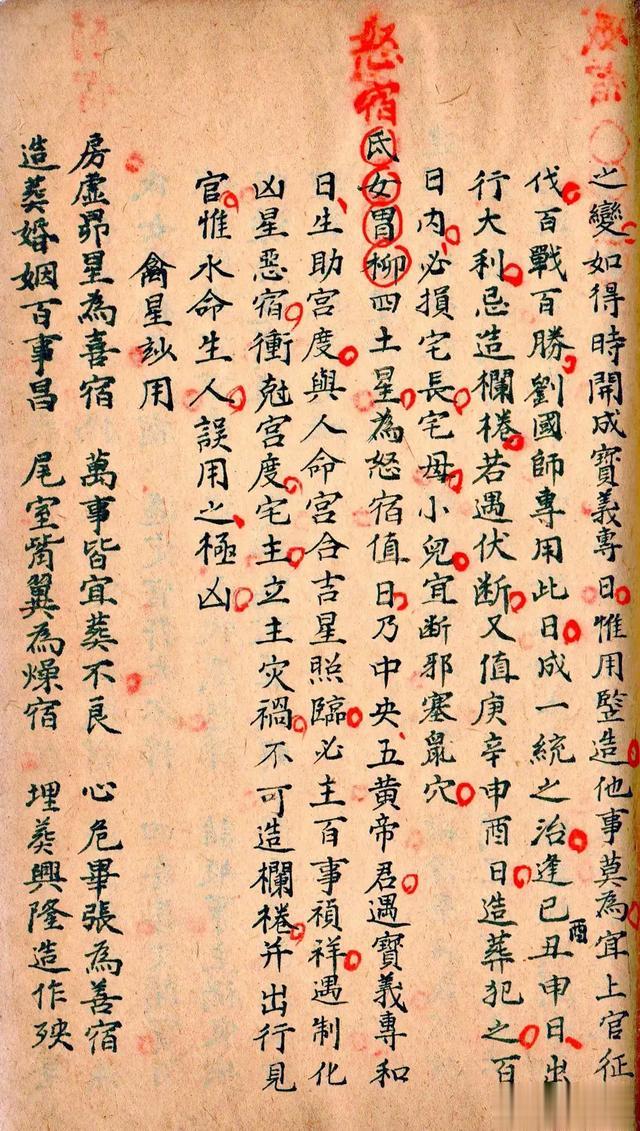 之變如得時開成寶義專日惟用豎造他事莫為宜上官征
伐百戰百勝劉國師專用此日成一統之治逢巳丑申酉日出
行大利忌造欄棬若遇伏断又值庚辛申酉日造葬犯之百
日內必損宅長宅母小兒宜断邪塞鼠穴
怒宿
氐女胃柳四土星為怒宿值日乃中央五黃帝君遇寶義專和
日生助宮度與人命宮合吉星照臨必主百事禎祥遇制化
凶星惡宿衝尅宮度宅主立主灾禍不可造欄棬并出行見
官惟水命生人誤用之極凶
禽星玅用
房虛昴星為喜宿 萬事皆宜葬不良 心危畢張為善宿
造葬婚姻百事昌 尾室觜翼為燥宿 埋葬興隆造作殃